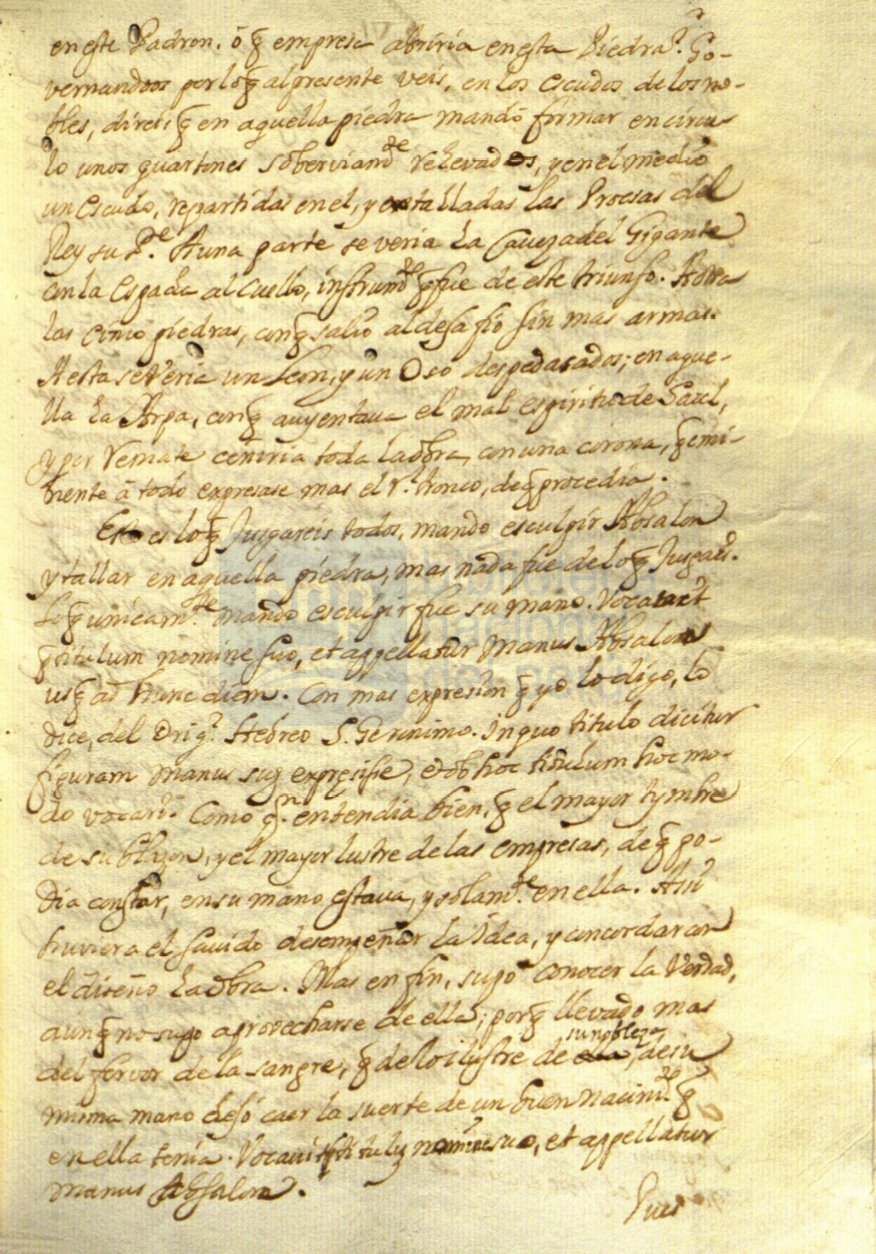 en este Padron. ó q̃ empresa abriria en esta Piedra? Go-
vernandoos por lo q̃ al presente veis, en los escudos de los no-
bles, direis q̃ en aquella piedra mandó formar en circu-
lo unos quartones soberviamᵗᵉ relevados, y en el medio
un escudo, repartidas en el, y entalladas las Proesas del
Rey su Pᵉ. A una parte se veria la Caveza del Gigante
con la Espada al Cuello, instrumᵗᵒ q̃ fue de este triunfo. A otra
las cinco piedras, con q̃ salió al desafio sin mas armas.
A esta se veria un Leon, y un Oso despedasados; en aque-
lla la Arpa, con q̃ auyentava el mal espiritu de Saul,
y por Remate ceñiria toda la obra, con una corona, q̃ emi-
nente á todo expresase mas el rˡ. tronco, de q̃ procedia.
Esto es lo q̃ Jusgareis todos, mandó esculpir Absalon
y tallar en aquella piedra, mas nada fue de lo q̃ Jusgais.
Lo q̃ unicamᵗᵉ mandó esculpir fue su mano. Vocavit
q̃ titulum nomine suo, et appellatur Manus Absalon
usq̃ ad hunc diem. Con mas expresion q̃ yo lo digo, lo
dice, del Origˡ. Hebreo S. Geronimo. In quo titulo dicitur
figuram manus suę expręsisse, et ob hoc titulum hoc mo-
do vocari. Como qⁿ. entendia bien, q̃ el mayor tymbre
de su blazon, y el mayor lustre de las empresas, de q̃ po-
dia constar, en su mano estava, y solamᵗᵉ en ella. Assi
huviera el savido desempeñar la Idea, y concordar con
el diseño la obra. Mas en fin, supo conocer la Verdad,
aunq̃ no supo aprovecharse de ella; porq̃ llevado mas
del fervor de la sangre, q̃ de lo ilustre de su nobleza, de su
misma mano dejó caer la suerte de un buen nacimᵗᵒ q̃
en ella tenia. Vocavit titulũ nomine suo, et appellatur
manus Absalon.
Pues
biblioteca
nacional
del perú